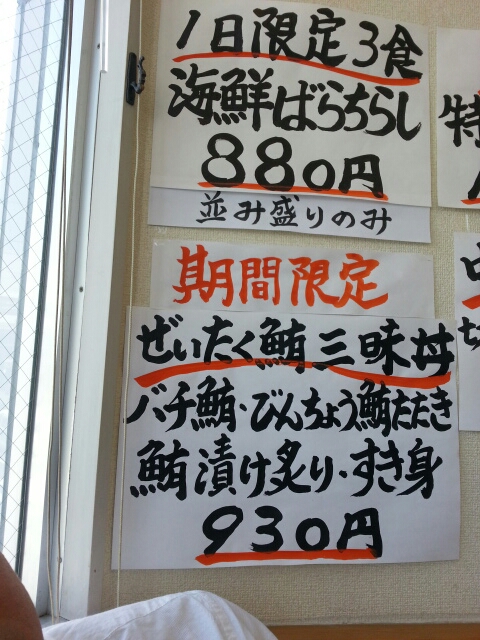 1日限定3食
海鮮ばらちらし
880円
並み盛りのみ
期間限定
ぜいたく鮪三昧丼
バチ鮪・びんちょう鮪たたき
鮪漬け炙り・すき身
930円
特
中